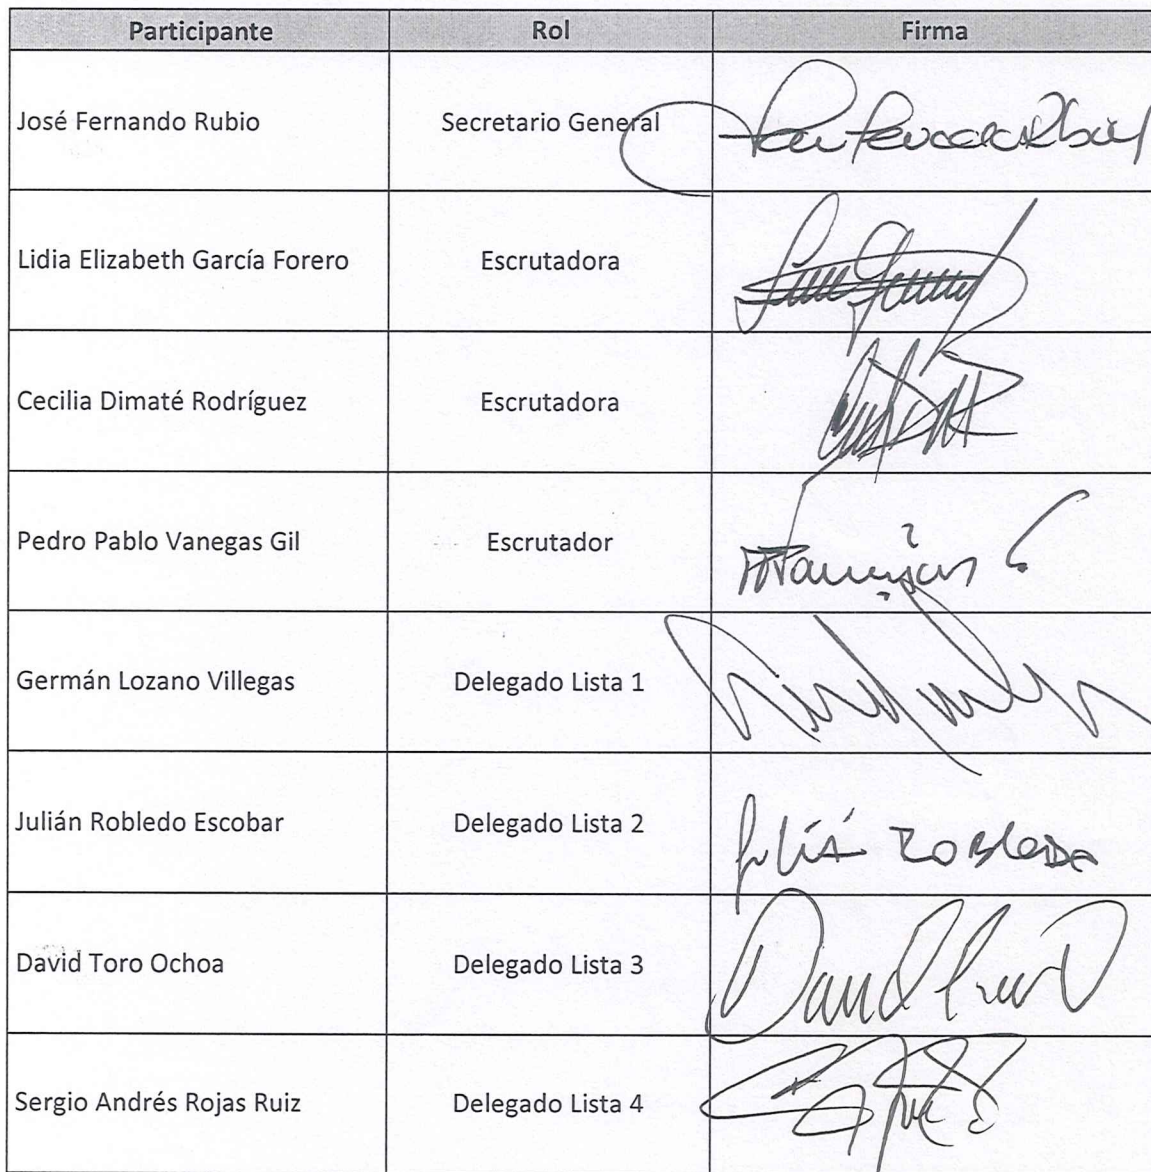 Participante Rol Firma
José Fernando Rubio Secretario General
Lidia Elizabeth García Forero Escrutadora
Cecilia Dimaté Rodríguez Escrutadora
Pedro Pablo Vanegas Gil Escrutador
Germán Lozano Villegas Delegado Lista 1
Julián Robledo Escobar Delegado Lista 2
David Toro Ochoa Delegado Lista 3
Sergio Andrés Rojas Ruiz Delegado Lista 4